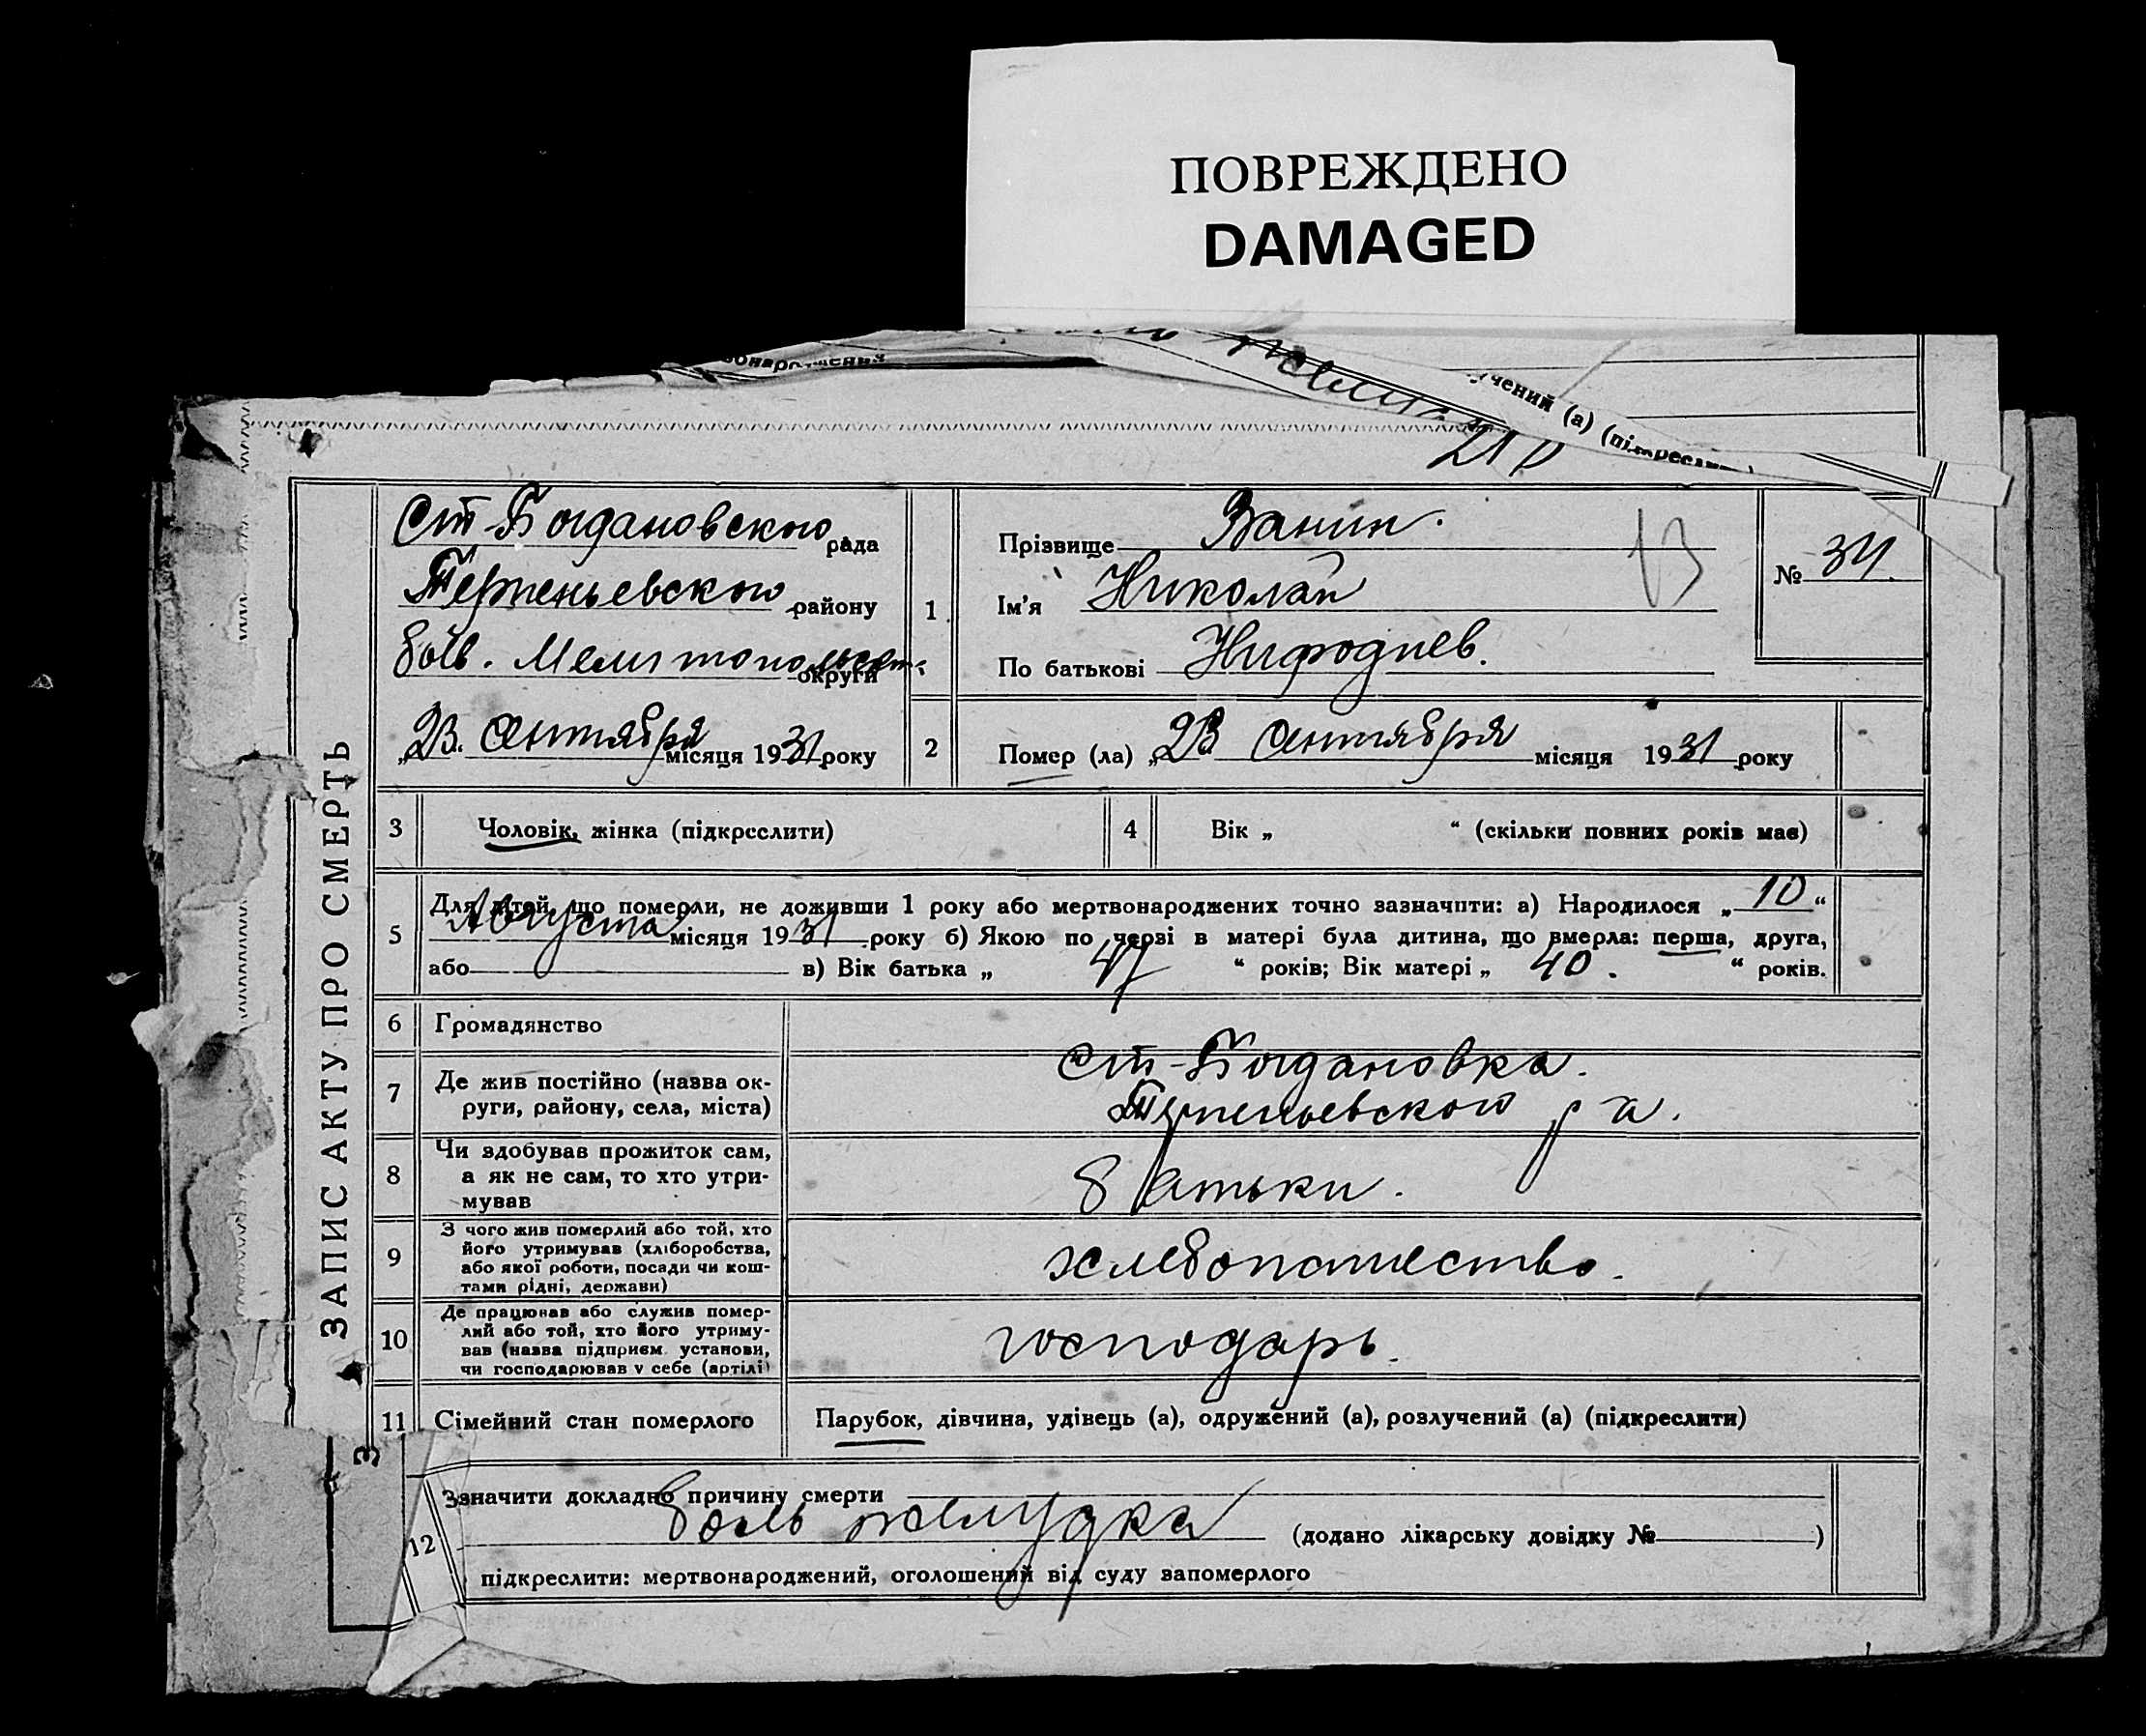 ПОВРЕЖДЕНО
DAMAGED
учений (а) (підкреслити)
ЗАПИС АКТУ ПРО СМЕРТЬ
Ст-Богдановского рада
Терпеньевского району
Мелитопольск. округи
„23“ Сентября місяця 1931 року
1
Прізвище Ванин.
Ім’я Николай
По батькові Нифодиев.
№ 34.
2
Помер (ла) „23 Сентября місяця 1931 року
3 Чоловік, жінка (підкреслити)
4 Вік „ “ (скільки повних років має)
5
Для дітей, що померли, не доживши 1 року або мертвонароджених точно зазначити: а) Народилося „10“
Августа місяця 1931 року б) Якою по черві в матері була дитина, що вмерла: перша, друга,
або в) Вік батька „ 47 “ років; Вік матері „ 40. “ років.
6 Громадянство
7
Де жив постійно (назва ок-
руги, району, села, міста)
Ст-Богдановка.
Терпеньевского р-а.
8
Чи здобував прожиток сам,
а як не сам, то хто утри-
мував
батьки.
9
З чого жив померлий або той, хто
його утримував (хліборобства,
або якої роботи, посади чи кош-
тами рідні, держави)
хлебопашество.
10
Де працював або служив помер-
лий або той, хто його утриму-
вав (назва підприєм. установи,
чи господарював у себе (артілі)
господарь.
11 Сімейний стан померлого
Парубок, дівчина, удівець (а), одружений (а), розлучений (а) (підкреслити)
12
Зазначити докладно причину смерти
боль желудка (додано лікарську довідку № )
підкреслити: мертвонароджений, оголошений від суду запомерлого